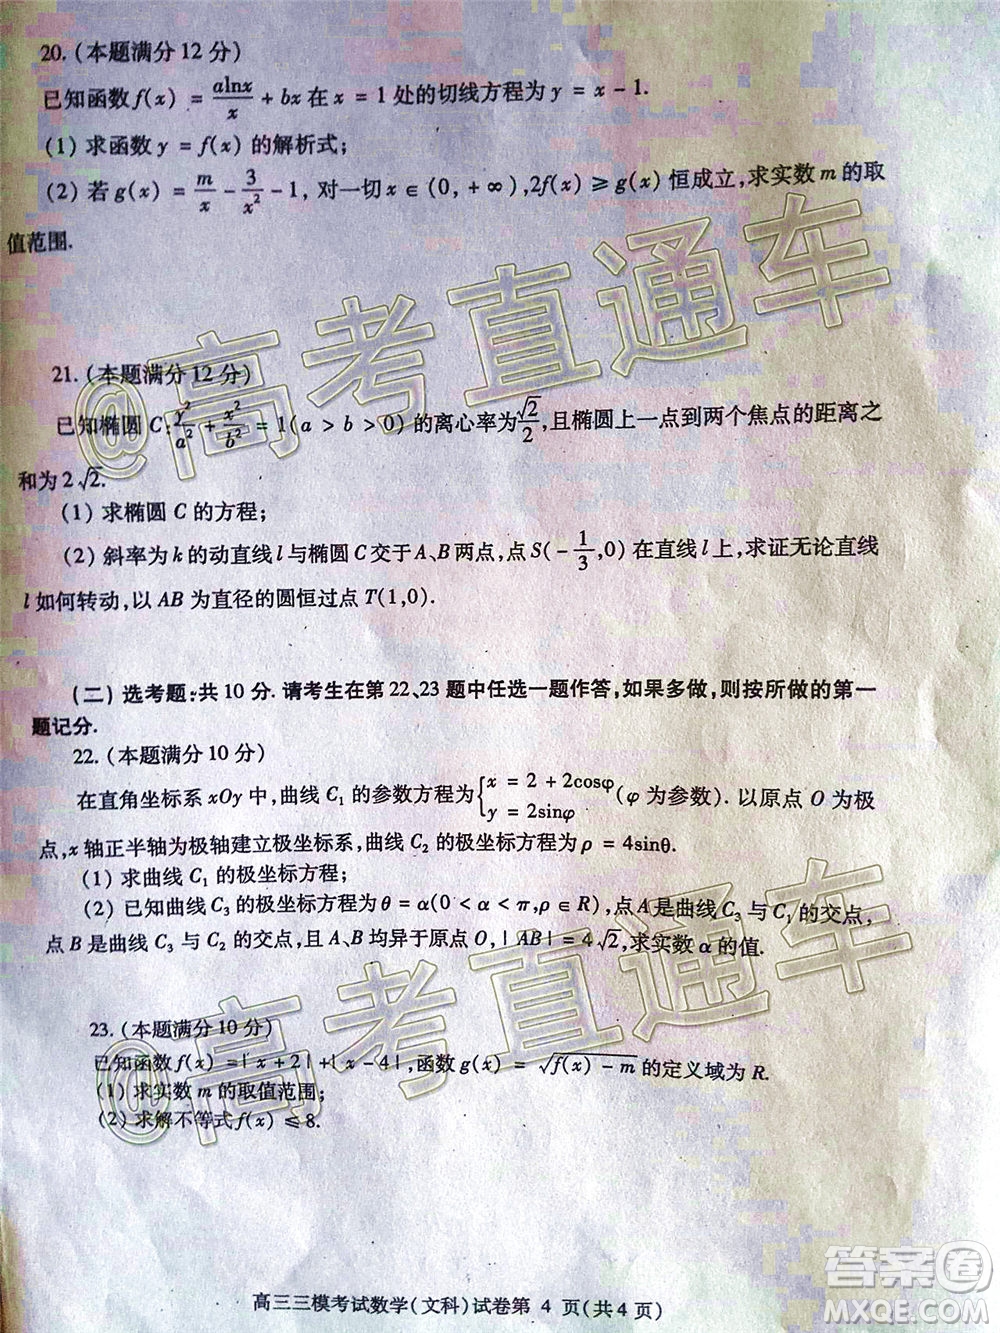 20. (本题满分12分)
已知函数f(x) = alnx/x + bx 在 x = 1 处的切线方程为 y = x - 1.
(1) 求函数 y = f(x) 的解析式;
(2) 若 g(x) = m/x - 3/x² - 1, 对一切 x ∈ (0, +∞), 2f(x) ≥ g(x) 恒成立,求实数 m 的取
值范围.
21. (本题满分12分)
已知椭圆 C: y²/a² + x²/b² = 1(a > b > 0) 的离心率为 √2/2, 且椭圆上一点到两个焦点的距离之
和为 2√2.
(1) 求椭圆 C 的方程;
(2) 斜率为 k 的动直线 l 与椭圆 C 交于 A、B 两点, 点 S(-1/3, 0) 在直线 l 上, 求证无论直线
l 如何转动, 以 AB 为直径的圆恒过点 T(1,0).
(二) 选考题: 共 10 分. 请考生在第 22、23 题中任选一题作答, 如果多做, 则按所做的第一
题记分.
22. (本题满分 10 分)
在直角坐标系 xOy 中, 曲线 C₁ 的参数方程为 { x = 2 + 2cosφ y = 2sinφ (φ 为参数). 以原点 O 为极
点, x 轴正半轴为极轴建立极坐标系, 曲线 C₂ 的极坐标方程为 ρ = 4sinθ.
(1) 求曲线 C₁ 的极坐标方程;
(2) 已知曲线 C₃ 的极坐标方程为 θ = α(0 < α < π, ρ ∈ R), 点 A 是曲线 C₃ 与 C₁ 的交点,
点 B 是曲线 C₃ 与 C₂ 的交点, 且 A、B 均异于原点 O, |AB| = 4√2, 求实数 α 的值.
23. (本题满分 10 分)
已知函数 f(x) = |x + 2| + |x - 4|, 函数 g(x) = √(f(x) - m) 的定义域为 R.
(1) 求实数 m 的取值范围;
(2) 求解不等式 f(x) ≤ 8.
高三三模考试数学(文科)试卷第 4 页(共 4 页)
@高考直通车
@高考直通车
答案圈
MXQE.COM